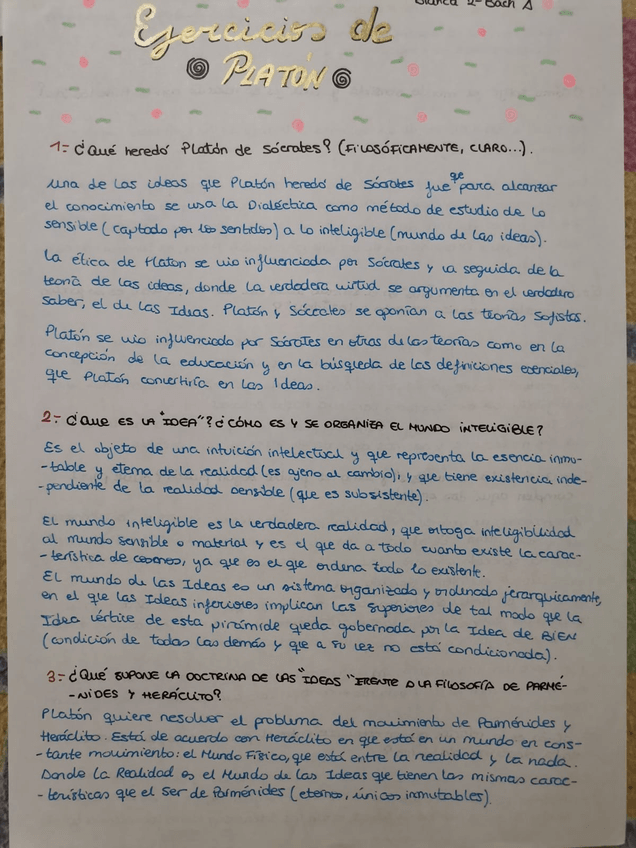 Blanca 2º Bach A
Ejercicios de
PLATÓN
1- ¿Qué heredó Platón de Sócrates? (FILOSÓFICAMENTE, CLARO...).
Una de las ideas que Platón heredó de Sócrates fue que para alcanzar
el conocimiento se usa la Dialéctica como método de estudio de lo
sensible (captado por los sentidos) a lo inteligible (mundo de las ideas).
La ética de Platón se vio influenciada por Sócrates y va seguida de la
teoría de las ideas, donde la verdadera virtud se argumenta en el verdadero
saber, el de las Ideas. Platón y Sócrates se oponían a las teorías Sofistas.
Platón se vio influenciado por Sócrates en otras de las teorías como en la
concepción de la educación y en la búsqueda de las definiciones esenciales,
que Platón convertiría en las Ideas.
2- ¿QUE ES LA "IDEA"? ¿CÓMO ES Y SE ORGANIZA EL MUNDO INTELIGIBLE?
Es el objeto de una intuición intelectual y que representa la esencia inmu-
-table y eterna de la realidad (es ajeno al cambio), y que tiene existencia inde-
-pendiente de la realidad sensible (que es subsistente).
El mundo inteligible es la verdadera realidad, que otorga inteligibilidad
al mundo sensible o material y es el que da a todo cuanto existe la carac-
-terística de cosmos, ya que es el que ordena todo lo existente.
El mundo de las Ideas es un sistema organizado y ordenado jerarquicamente,
en el que las Ideas inferiores implican las superiores de tal modo que la
Idea vértice de esta pirámide queda gobernada por la Idea de BIEN
(condición de todas las demás y que a su vez no está condicionada).
3- ¿QUÉ SUPONE LA DOCTRINA DE LAS "IDEAS" FRENTE A LA FILOSOFÍA DE PARMÉ-
-NIDES Y HERÁCLITO?
Platón quiere resolver el problema del movimiento de Parménides y
Heráclito. Está de acuerdo con Heráclito en que está en un mundo en cons-
-tante movimiento: el Mundo Físico, que está entre la realidad y la nada.
Donde la Realidad es el Mundo de las Ideas que tienen las mismas carac-
-terísticas que el Ser de Parménides (eternos, únicos inmutables).